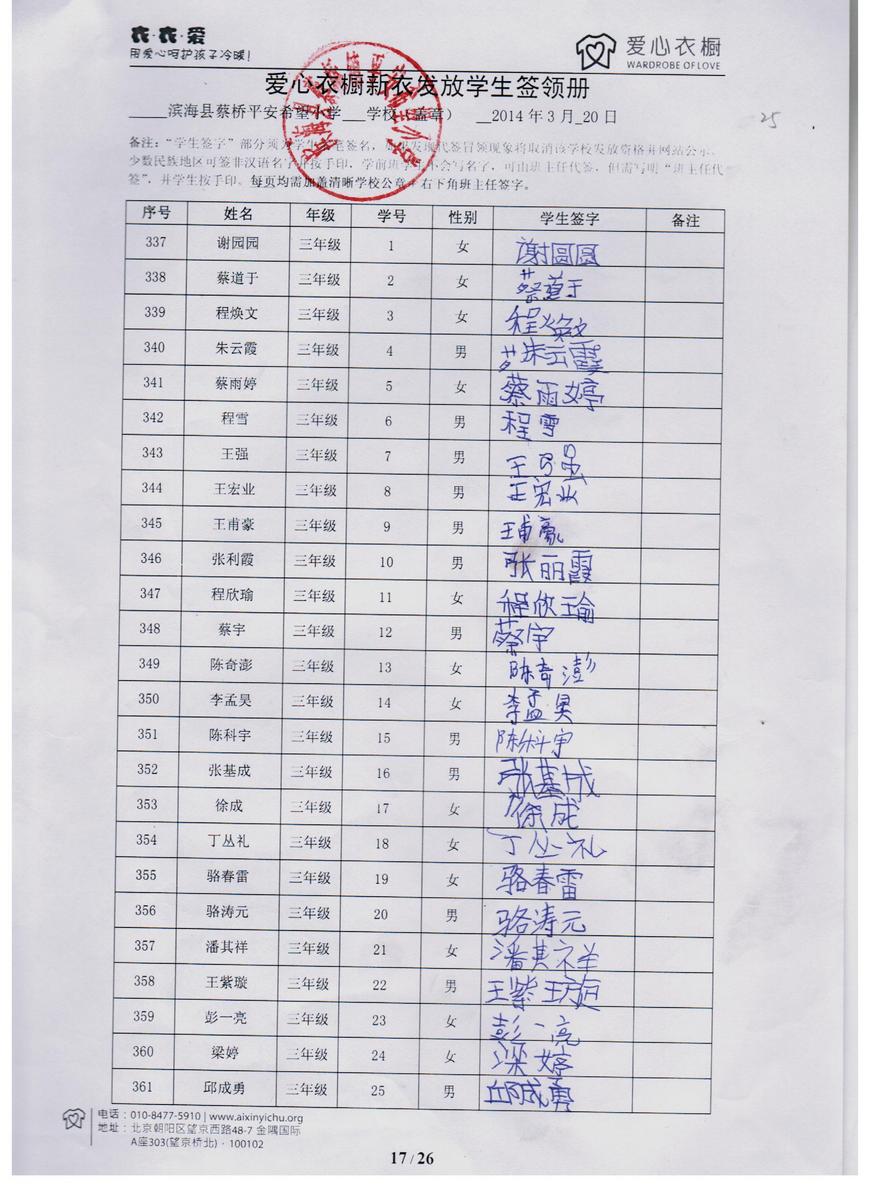 衣·衣·爱
用爱心呵护孩子冷暖!
爱心衣橱
WARDROBE OF LOVE
爱心衣橱新衣发放学生签领册
滨海县蔡桥平安希望小学 学校(盖章) 2014年3月20日
25
备注:“学生签字”部分须为学生签名,如果发现代签冒领现象将取消该学校发放资格并网站公示。
少数民族地区可签非汉语名字并按手印,学前班学生不会写名字,可由班主任代签,但需写明“班主任代
签”,并学生按手印。每页均需加盖清晰学校公章,右下角班主任签字。
序号 姓名 年级 学号 性别 学生签字 备注
337 谢园园 三年级 1 女 谢圆圆
338 蔡道于 三年级 2 女 蔡道于
339 程焕文 三年级 3 女 程焕文
340 朱云霞 三年级 4 男 朱云霞
341 蔡雨婷 三年级 5 女 蔡雨婷
342 程雪 三年级 6 男 程雪
343 王强 三年级 7 男 王强
344 王宏业 三年级 8 男 王宏业
345 王甫豪 三年级 9 男 王甫豪
346 张利霞 三年级 10 男 张丽霞
347 程欣瑜 三年级 11 女 程欣瑜
348 蔡宇 三年级 12 男 蔡宇
349 陈奇澎 三年级 13 女 陈奇澎
350 李孟昊 三年级 14 女 李孟昊
351 陈科宇 三年级 15 男 陈科宇
352 张基成 三年级 16 男 张基成
353 徐成 三年级 17 女 徐成
354 丁丛礼 三年级 18 女 丁丛礼
355 骆春雷 三年级 19 女 骆春雷
356 骆涛元 三年级 20 男 骆涛元
357 潘其祥 三年级 21 女 潘其祥
358 王紫璇 三年级 22 男 王紫璇
359 彭一亮 三年级 23 女 彭一亮
360 梁婷 三年级 24 女 梁婷
361 邱成勇 三年级 25 男 邱成勇
电话:010-8477-5910 | www.aixinyichu.org
地址:北京朝阳区望京西路48-7 金隅国际
A座303(望京桥北)·100102
17 / 26